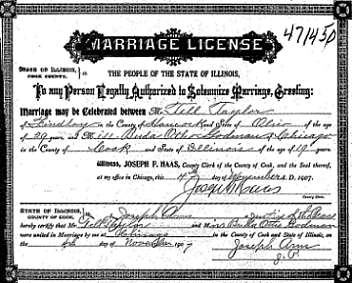 471450
MARRIAGE LICENSE
STATE OF ILLINOIS, COOK COUNTY. } ss.
THE PEOPLE OF THE STATE OF ILLINOIS,
To any Person Legally Authorized to Solemnize Marriage, Greeting:
Marriage may be Celebrated between Mr. Tell Taylor
of Findlay in the County of Hancock and State of Ohio of the age
of 29 years and Miss Buda Otto Bodman of Chicago
in the County of Cook and State of Illinois of the age of 19 years
Witness, JOSEPH F. HAAS, County Clerk of the County of Cook, and the Seal thereof,
at my office in Chicago, this 4th day of November A. D. 1907.
Joseph F. Haas
County Clerk.
STATE OF ILLINOIS, COUNTY OF COOK, } ss. I, Joseph a Justice of the Peace
hereby certify that Mr. Tell Taylor and Miss Buda Otto Bodman
were united in Marriage by me at Chicago in the County of Cook and State of Illinois, on
the 4th day of November 1907
Joseph
J.P.